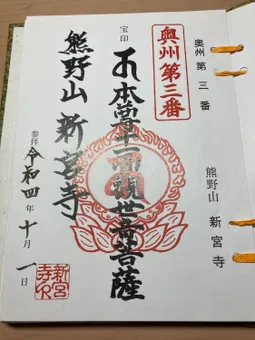 奥州第三番
熊野山 新宮寺
奥州第三番
宝印
本堂十一面観世音菩薩
熊野山新宮寺
参拝 令和四年十月一日
新宮寺印